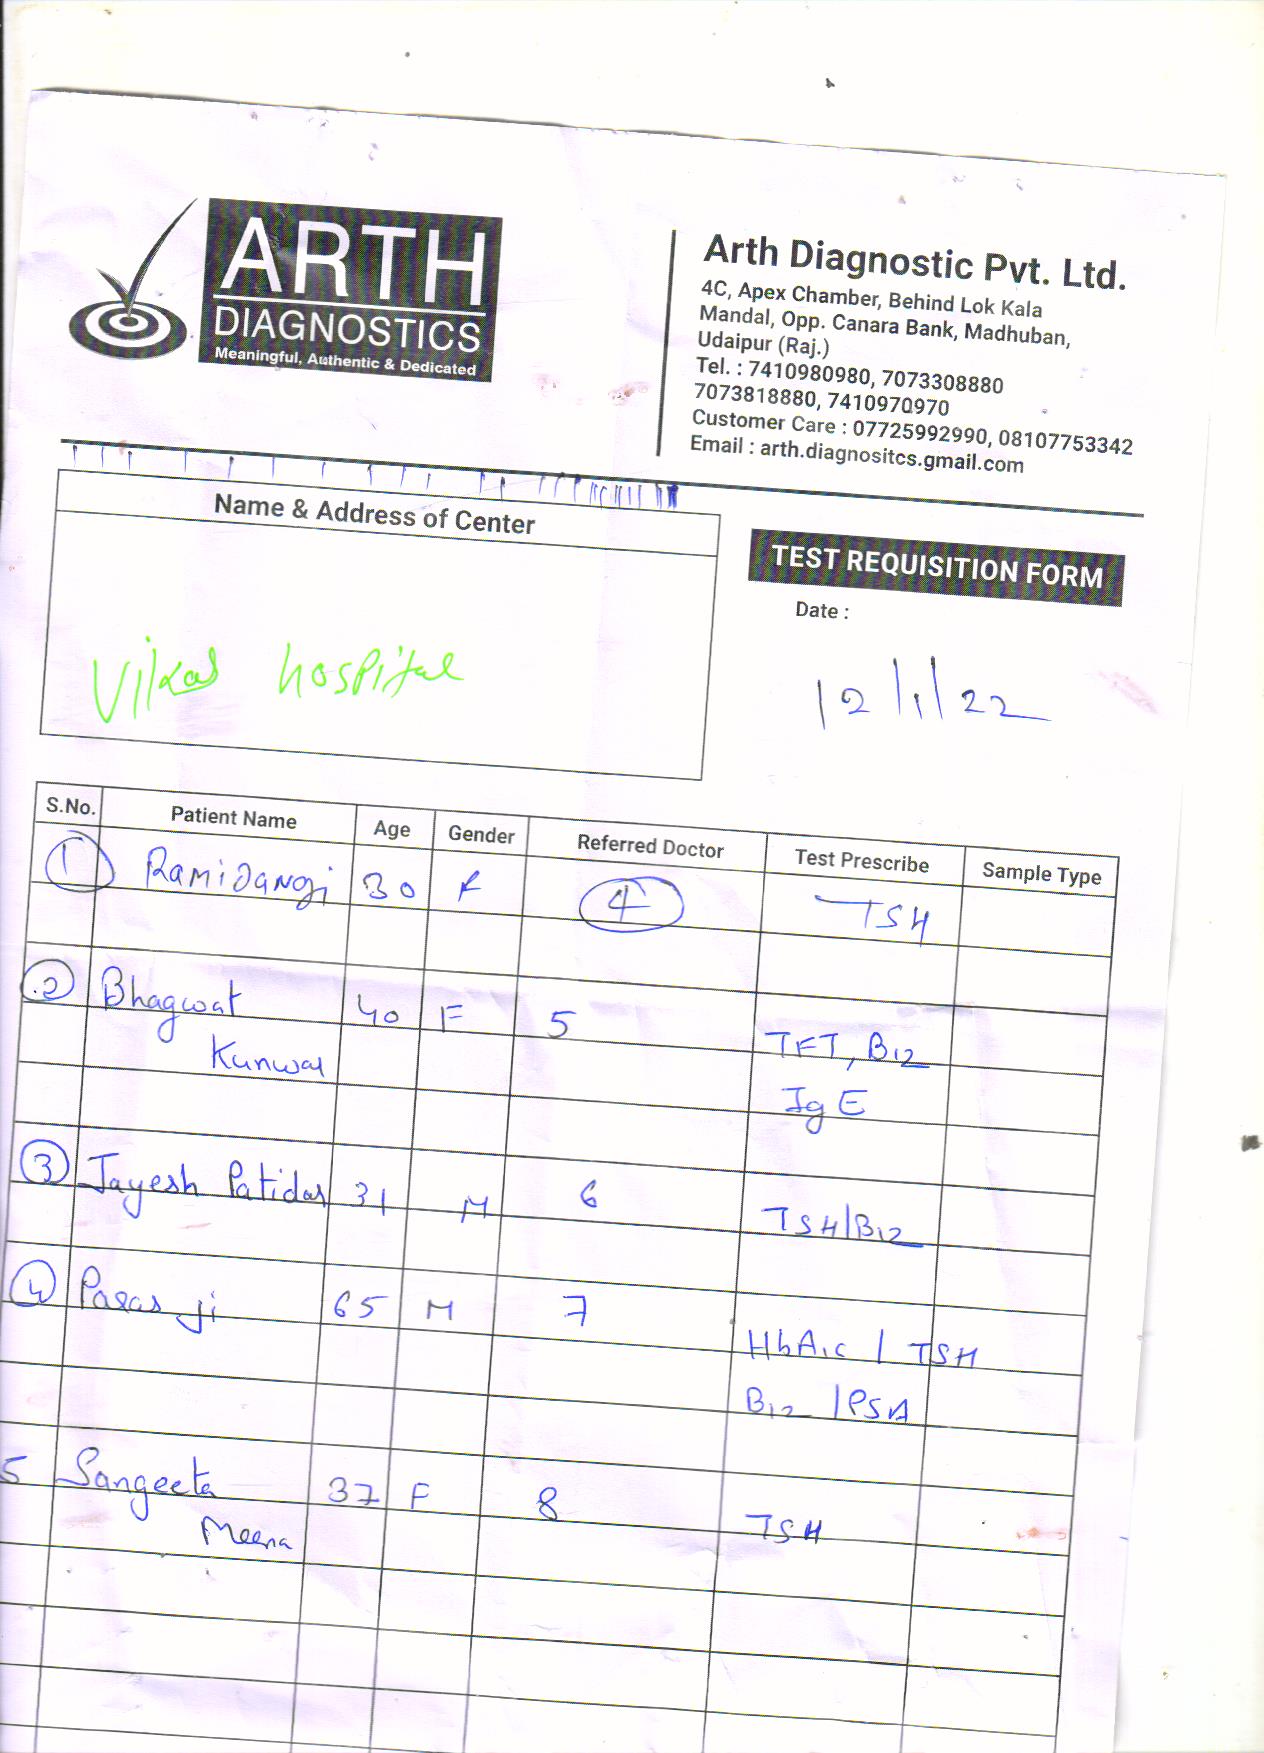 ARTH
DIAGNOSTICS
Meaningful, Authentic & Dedicated
Arth Diagnostic Pvt. Ltd.
4C, Apex Chamber, Behind Lok Kala
Mandal, Opp. Canara Bank, Madhuban,
Udaipur (Raj.)
Tel. : 7410980980, 7073308880
7073818880, 7410970970
Customer Care : 07725992990, 08107753342
Email : arth.diagnositcs.gmail.com
Name & Address of Center
Vikas hospital
TEST REQUISITION FORM
Date :
12/1/22
S.No. Patient Name Age Gender Referred Doctor Test Prescribe Sample Type
1 RamiDangi 30 F 4 TSH
2 Bhagwat 40 F 5 TFT, B12
Kunwar IgE
3 Jayesh Patidar 31 M 6 TSH/B12
4 Paras ji 65 M 7 HbA1c / TSH
B12 / PSA
5 Sangeeta 37 F 8 TSH
Meena